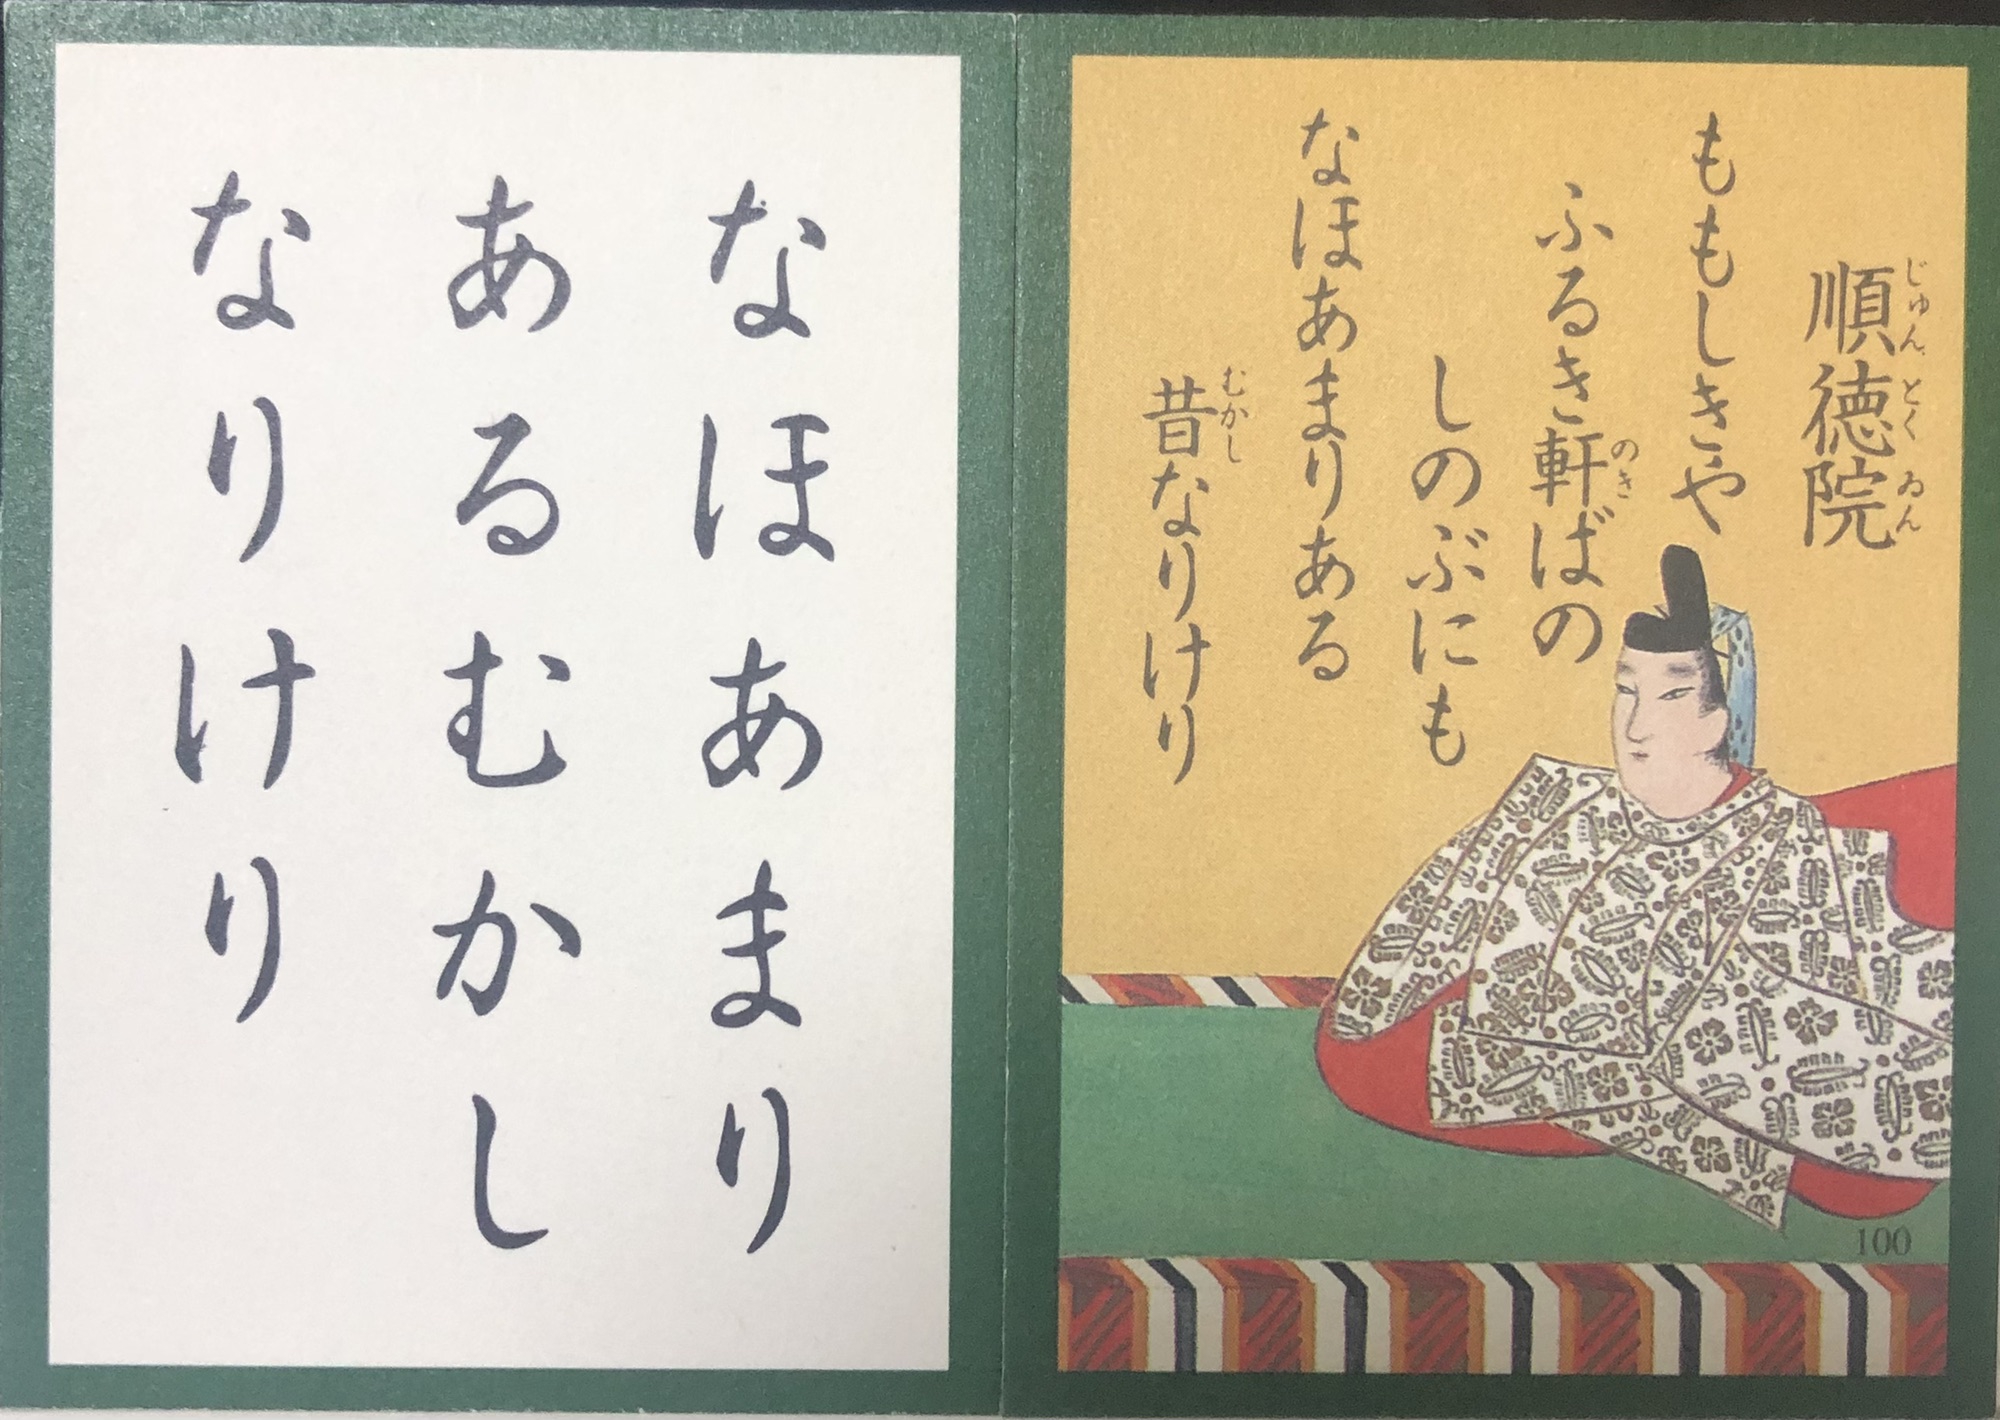 順徳院
じゅんとくゐん
ももしきや
ふるき軒ばの
のき
しのぶにも
なほあまりある
昔なりけり
むかし
100
なほあまり
あるむかし
なりけり